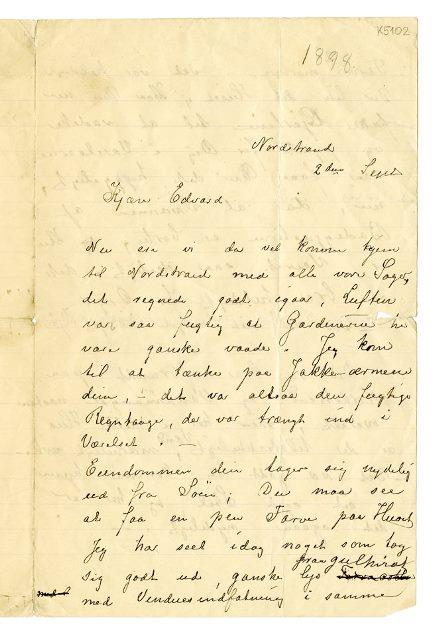 K5102
1898.
Nordstrand
2den Sept
Kjære Edvard
Nu ere vi da vel kommen hjem
til Nordstrand med alle vore Sager,
det regnede godt igaar, Luften
var saa fugtig at Gardinerne
vare ganske vaade. Jeg kom
til at tænke paa Jakke-ærmene
dine, – det var altsaa den fugtige
Regntaage, der var trængt ind i
Værelset. –
Eiendommen den tager sig nydelig
ud fra Söen; Du maa see
at faa en pen Farve paa Huset,
Jeg har seet idag noget som tog
sig godt ud, ganske lys graagulhvidt
med Vinduesindfatning i samme